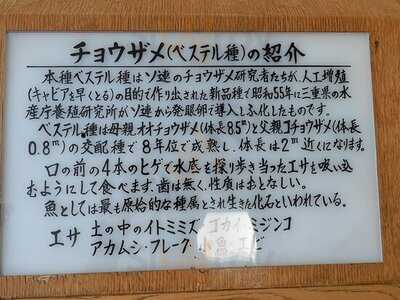 チョウザメ(ベステル種)の紹介
本種ベステル種はソ連のチョウザメ研究者たちが、人工増殖
(キャビアを早くとる)の目的で作り出された新品種で昭和55年に三重県の水
産庁養殖研究所がソ連から発眼卵で導入しふ化したものです。
ベステル種は母親オオチョウザメ(体長8.5m)と父親コチョウザメ(体長
0.8m)の交配種で8年位で成熟し、体長は2m近くになります。
口の前の4本のヒゲで水底を探り歩き当ったエサを吸い込
むようにして食べます。歯は無く、性質はおとなしい。
魚としては最も原始的な種属とされ生きた化石といわれている。
エサ 土の中のイトミミズ、ゴカイ・ミジンコ
アカムシ・フレーク・小魚・エビ